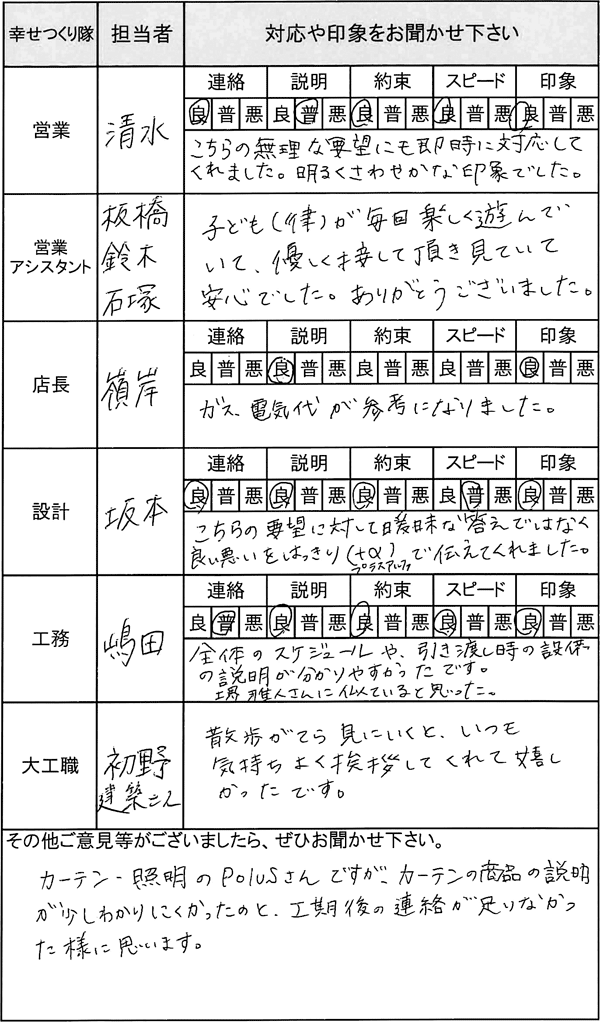 幸せつくり隊 担当者 対応や印象をお聞かせ下さい
営業 清水
連絡 説明 約束 スピード 印象
良 普 悪 良 普 悪 良 普 悪 良 普 悪 良 普 悪
こちらの無理な要望にも即時に対応して
くれました。明るくさわせかな印象でした。
営業
アシスタント
板橋
鈴木
石塚
子ども(律)が毎日楽しく遊んで
いて、優しく接して頂き見ていて
安心でした。ありがとうございました。
店長 嶺岸
連絡 説明 約束 スピード 印象
良 普 悪 良 普 悪 良 普 悪 良 普 悪 良 普 悪
ガス、電気代が参考になりました。
設計 坂本
連絡 説明 約束 スピード 印象
良 普 悪 良 普 悪 良 普 悪 良 普 悪 良 普 悪
こちらの要望に対して曖昧な答えではなく
良い悪いをはっきり(+α)で伝えてくれました。
プラスアルファ
工務 嶋田
連絡 説明 約束 スピード 印象
良 普 悪 良 普 悪 良 普 悪 良 普 悪 良 普 悪
全体のスケジュールや、引き渡し時の設備
の説明が分かりやすかったです。
堺雅人さんに似ていると思った。
大工職
初野
建築さん
散歩がてら見にいくと、いつも
気持ちよく挨拶してくれて嬉し
かったです。
その他ご意見等がございましたら、ぜひお聞かせ下さい。
カーテン・照明のPolusさんですが、カーテンの商品の説明
が少しわかりにくかったのと、工期後の連絡が足りなかっ
た様に思います。